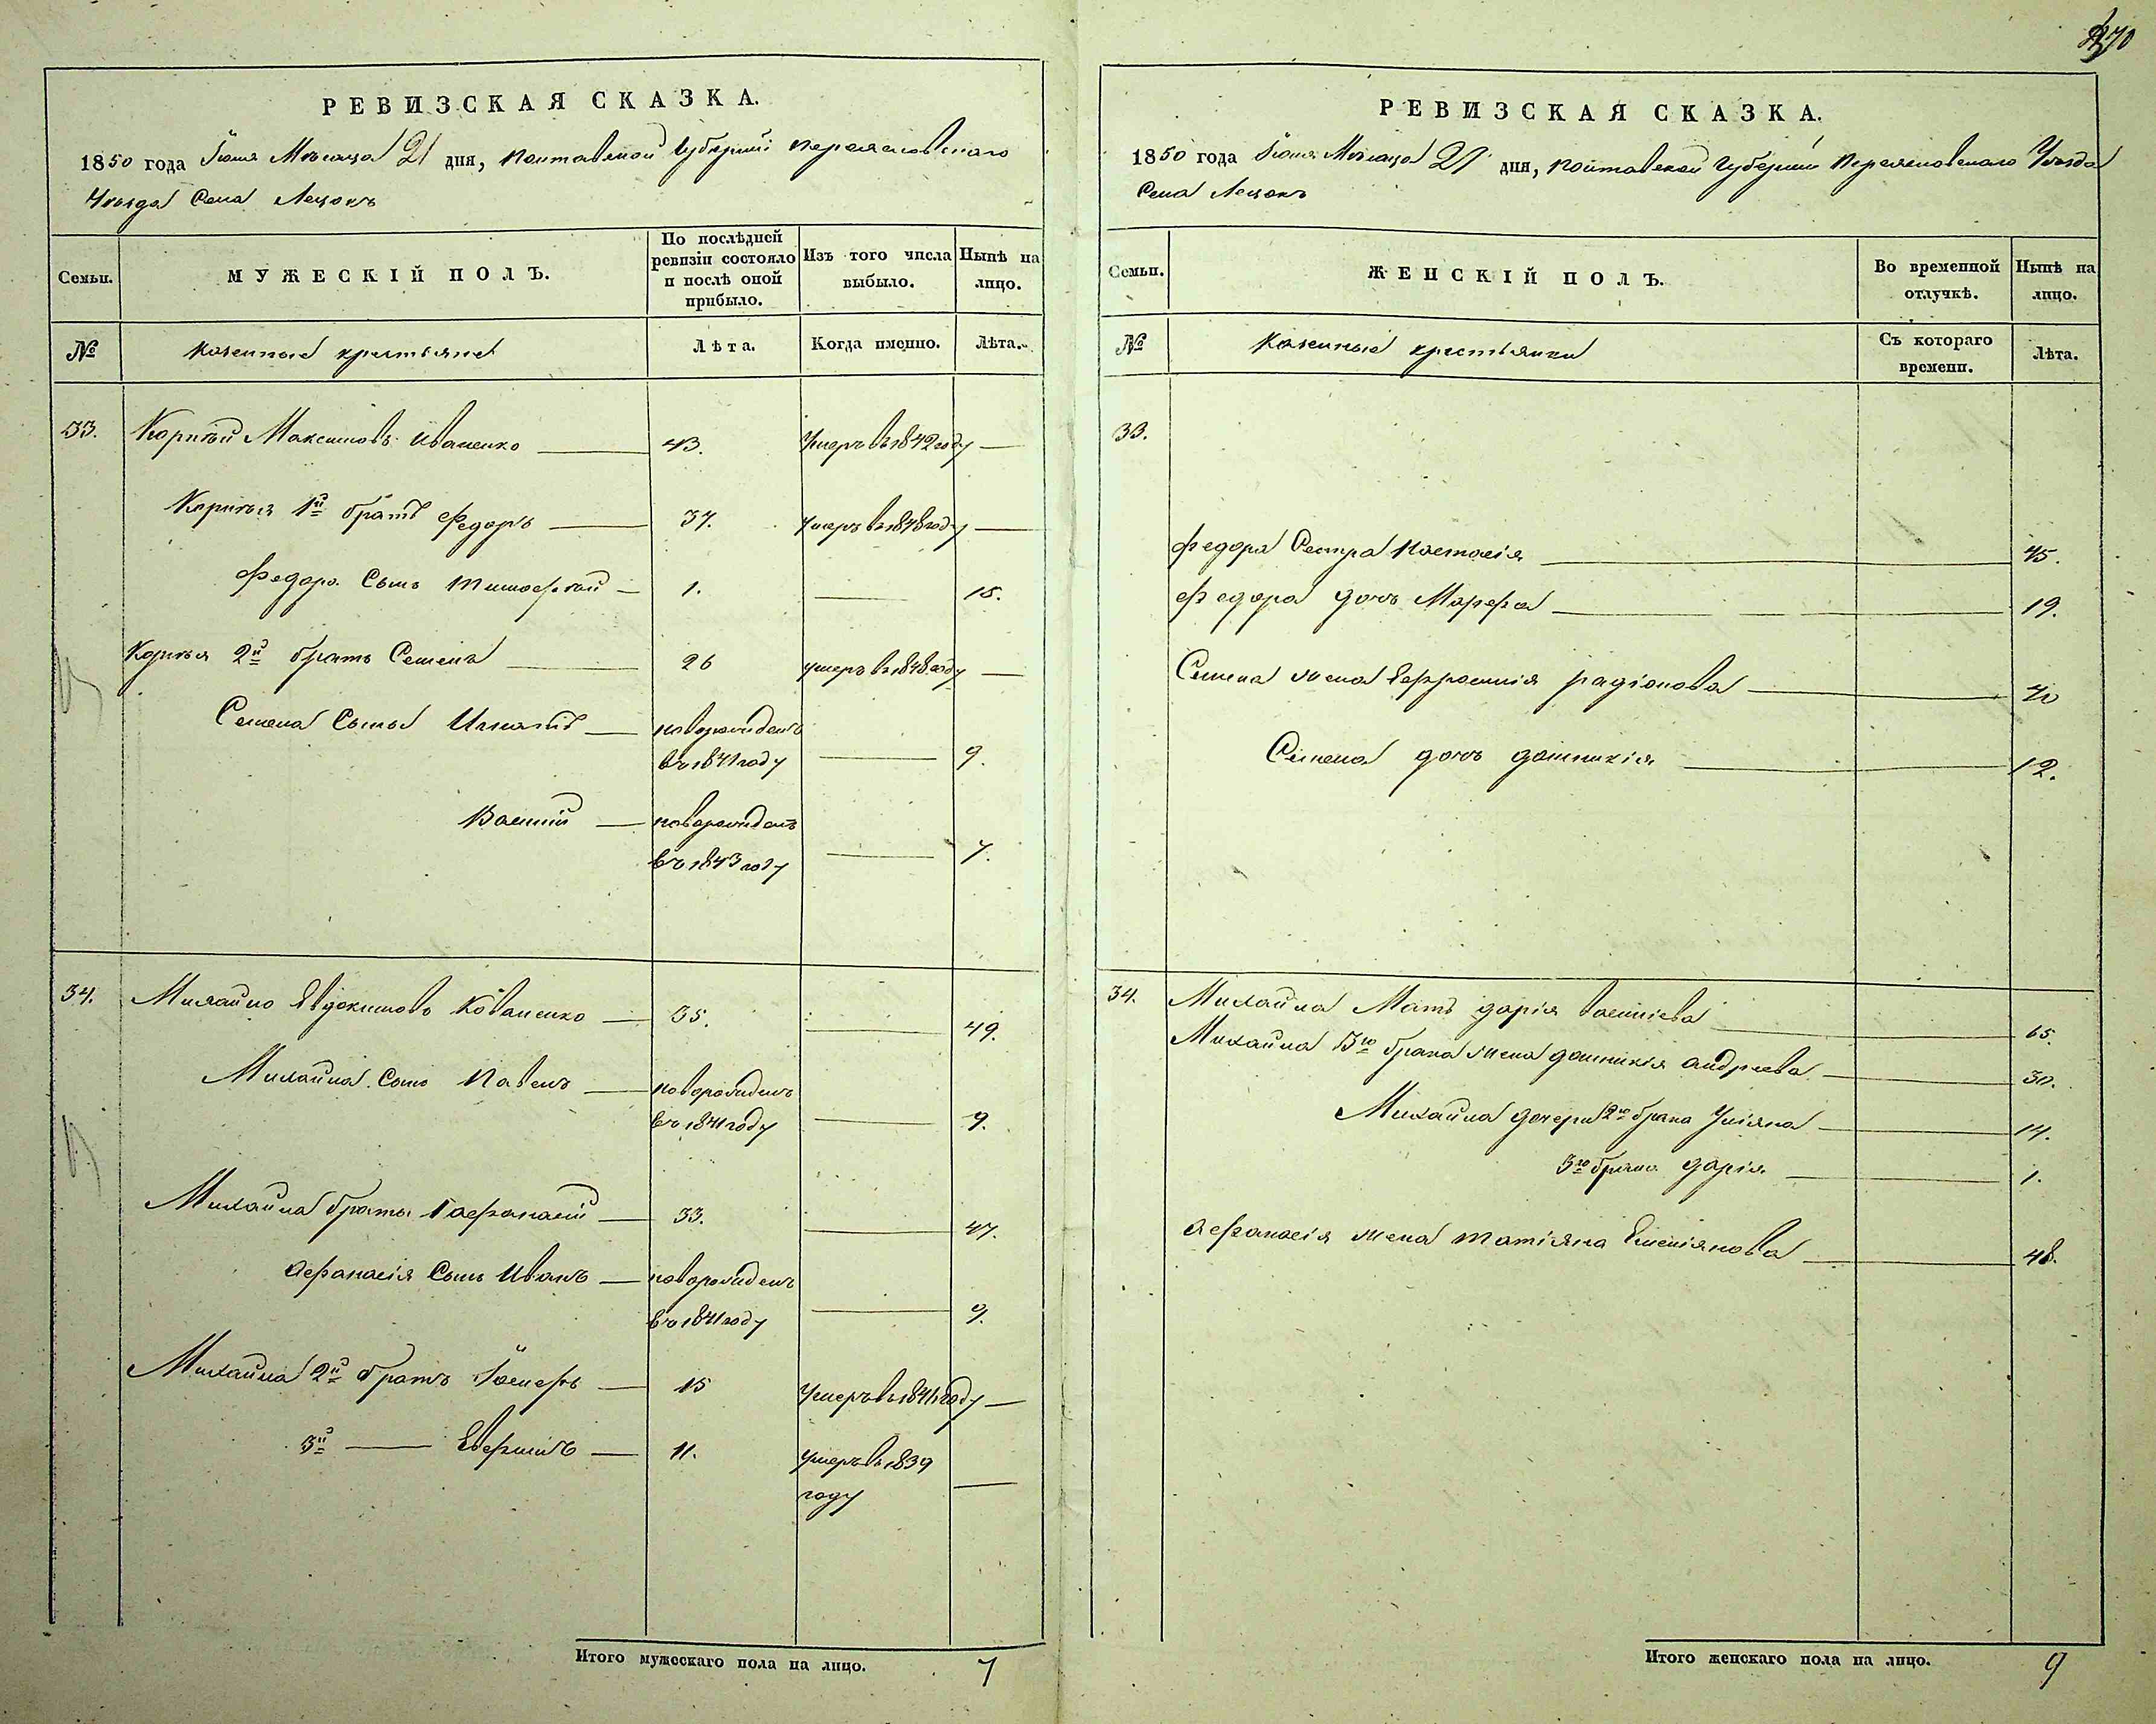 270
РЕВИЗСКАЯ СКАЗКА.
1850 года Іюня Мѣсяца 21 дня, Полтавской Губерніи Переяславскаго
Уѣзда Села Лецокъ
Семьи.
МУЖЕСКІЙ ПОЛЪ.
По послѣдней ревизіи состояло и послѣ оной прибыло.
Изъ того числа выбыло.
Нынѣ на лицо.
№
Казенные крестьяне
Лѣта.
Когда именно.
Лѣта.
33. Корнѣй Максимовъ Иваненко 43. Умеръ в 1842 году
Корнѣя 1й братъ Федоръ 37. умеръ в 1848 году
Федора Сынъ Тимофѣй 1. 15.
Корнѣя 2й братъ Семенъ 26 умеръ в 1848 году
Семена Сыны Игнатъ новорожденъ
въ 1841 году 9.
Василій новорожденъ
въ 1843 году 7.
34. Михайло Евдокимовъ Коваленко 35. 49.
Михайла Сынъ Павелъ новорожденъ
въ 1841 году 9.
Михайла братья 1 Афанасій 33. 47.
Афанасія Сынъ Иванъ новорожденъ
въ 1841 году 9.
Михайла 2й братъ Іосифъ 15 Умеръ в 1841 году
3й Евфимъ 11. умеръ в 1839
году
Итого мужескаго пола на лицо. 7
РЕВИЗСКАЯ СКАЗКА.
1850 года Іюня Мѣсяца 21 дня, Полтавской Губерніи Переяславскаго Уѣзда
Села Лецокъ
Семьи.
ЖЕНСКІЙ ПОЛЪ.
Во временной отлучкѣ.
Нынѣ на лицо.
№
Казенные крестьянки
Съ котораго времени.
Лѣта.
33.
Федора Сестра Настасія 45.
Федора дочь Марфа 19.
Семена жена Евфросинія Радіонова 40
Семена дочь Домникія 12.
34. Михайла Мать Дарія Васильева 65.
Михайла 3го брака жена Домникія Андреева 30.
Михайла дочери 2го брака Уліяна 14.
3го брака Дарія 1.
Афанасія жена Татіяна Емеліянова 48.
Итого женскаго пола на лицо. 9